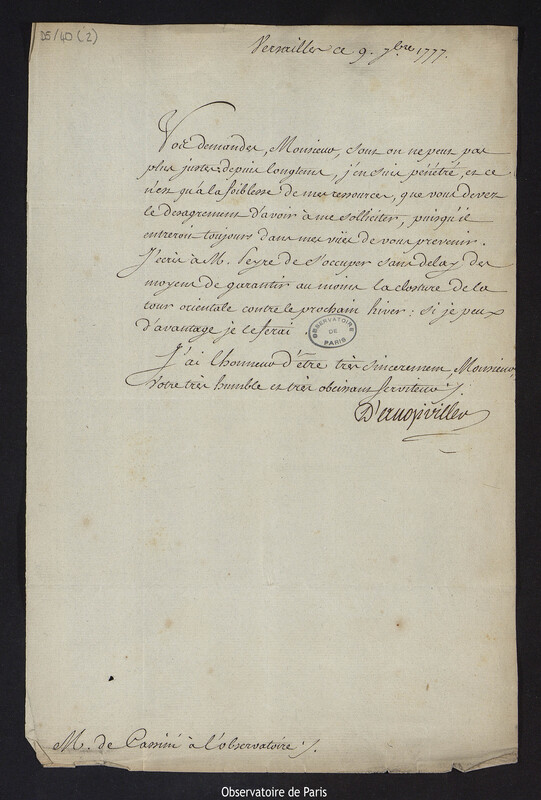 D5/40 (2)
Versailles ce 9. 7bre 1777.
Vos demandes, Monsieur, sont on ne peut pas
plus justes depuis longtems, j'en suis pénétré, et ce
n'est qu'à la foiblesse de mes ressources, que vous devez
le desagrement d'avoir à me solliciter, puisqu'il
entreroit toujours dans mes vües de vous prevenir.
J'écris à M. Peyre de s'occuper sans delay des
moyens de garantir au moins la closture de la
tour orientale contre le prochain hiver : si je peux
d'avantage je le ferai.
OBSERVATOIRE
DE
PARIS
J'ai l'honneur d'être très sincerement, Monsieur,
Votre très humble et très obéissant serviteur ./.
D'angiviller
M. de Cassini à l'observatoire ./.
Observatoire de Paris